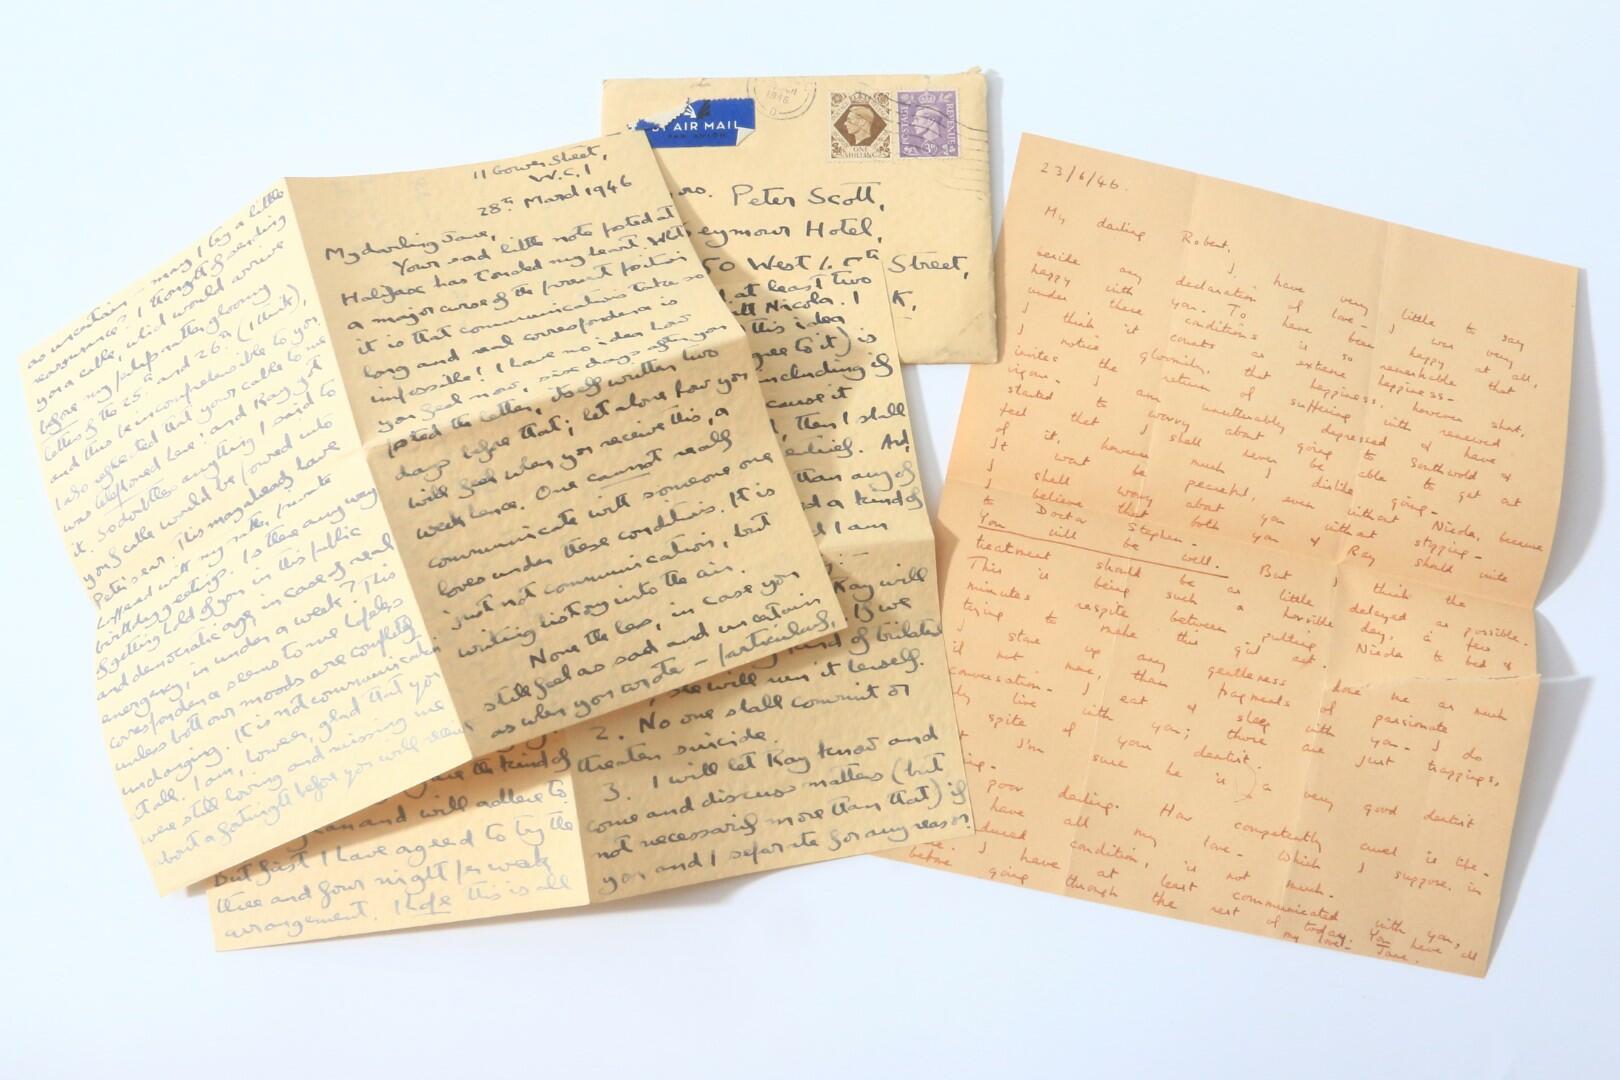 as uncertain — may I beg a little
reassurance? I thought of sending
you a cable, which would arrive
before my perhaps rather gloomy
letters of the 25th and 26th (I think),
and thus be incomprehensible to you.
I also reflected that your cable to me
was telephoned here; and Kay got
it. So doubtless anything I said to
you of cable would be poured into
Peter's ear. This may already have
happened with my rather private
birthday greetings. Is there any way
of getting hold of you in this public
and democratic age, in case of real
emergency, in under a week? This
correspondence seems to me hopeless
unless both our moods are completely
unchanging. It is not communication
at all. I am, however, glad that you
were still loving and missing me
about a fortnight before you will receive
11 Gower Street,
W.C.1
28th March 1946
My darling Jane,
Your sad little note posted at
Halifax has touched my heart. What
a major curse of the present position
it is that communications take so
long and real correspondence is
impossible! I have no idea how
you feel now, six days after you
posted the letter, itself written two
days before that; let alone how you
will feel when you receive this, a
week hence. One cannot really
communicate with someone one
loves under these conditions. It is
just not communication, but
writing history into the air.
None the less, in case you
still feel as sad and uncertain
as when you wrote — particularly
BY AIR MAIL
PAR AVION
1946
ONE
SHILLING
POSTAGE
REVENUE
3D
Peter Scott,
Seymour Hotel,
50 West Street,
at least two
with Nicola. I
this idea
agree to it) is
including if
cause it
, then I shall
And
than any of
a kind of
I am
Kay will
If we
kind of
she will win it herself.
2. No one shall commit or
threaten suicide.
3. I will let Kay know and
come and discuss matters (but
not necessarily more than that) if
you and I separate for any reason
the kind of
and will adhere to
But first I have agreed to try the
three and four night per week
arrangement. I hope this is all
23/6/46.
My darling Robert,
I have very little to say
beside any declaration of love — I was very
happy with you. To have been happy at all,
under these conditions is so remarkable that
I think it counts as extreme happiness —
I notice gloomily, that happiness, however short,
invites the return of suffering with renewed
vigour — I am unutterably depressed & have
started to worry about going to Southwold &
feel that I shall never be able to get out
of it, however much I dislike going —
It wont be peaceful, even without Nicola, because
I shall worry about you without stopping —
to believe that both you & Kay should unite
Doctor Stephen —
You will be well. But I think the
treatment should be as little delayed as possible.
This is being such a horrible day, a few
minutes respite between putting Nicola to bed &
trying to make this girl eat.
I store up any gentleness
love me as much
if not more, than fragments of passionate
conversation — I eat & sleep with you — I do
live with you; those are just trappings,
spite of your dentist.
I'm sure he is a very good dentist
poor darling. How competently cruel is life —
have all my love — which I suppose, in
condition, is not much —
I have at least communicated with you,
before going through the rest of today. You have all
my love —
Jane.